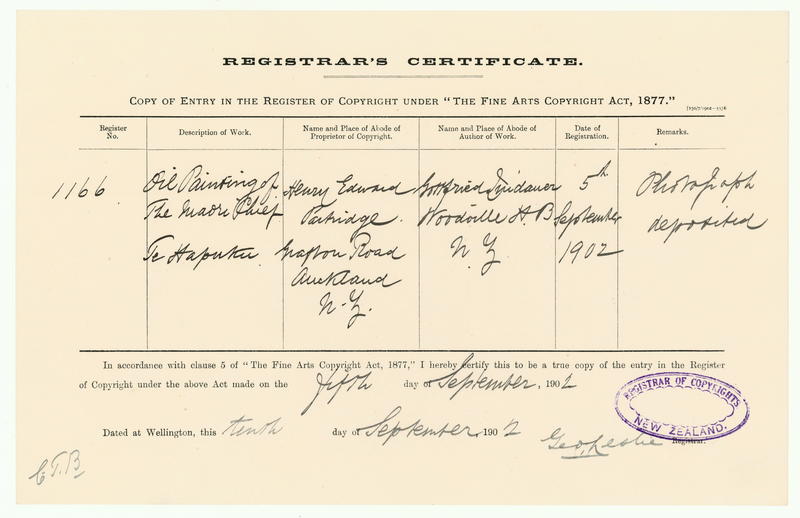 REGISTRAR'S CERTIFICATE.
COPY OF ENTRY IN THE REGISTER OF COPYRIGHT UNDER "THE FINE ARTS COPYRIGHT ACT, 1877."
Register No.
Description of Work.
Name and Place of Abode of Proprietor of Copyright.
Name and Place of Abode of Author of Work.
Date of Registration.
Remarks.
1166
Oil Painting of
The Maori Chief
Te Hapuku
Henry Edward
Partridge.
Grafton Road
Auckland
N.Z.
Gottfried Lindauer
Woodville H.B
N Z
5th
September
1902
Photograph
deposited
In accordance with clause 5 of "The Fine Arts Copyright Act, 1877," I hereby certify this to be a true copy of the entry in the Register
of Copyright under the above Act made on the fifth day of September, 1902
REGISTRAR OF COPYRIGHTS
NEW ZEALAND.
Dated at Wellington, this tenth day of September, 1902
Geo. Leslie
Registrar.